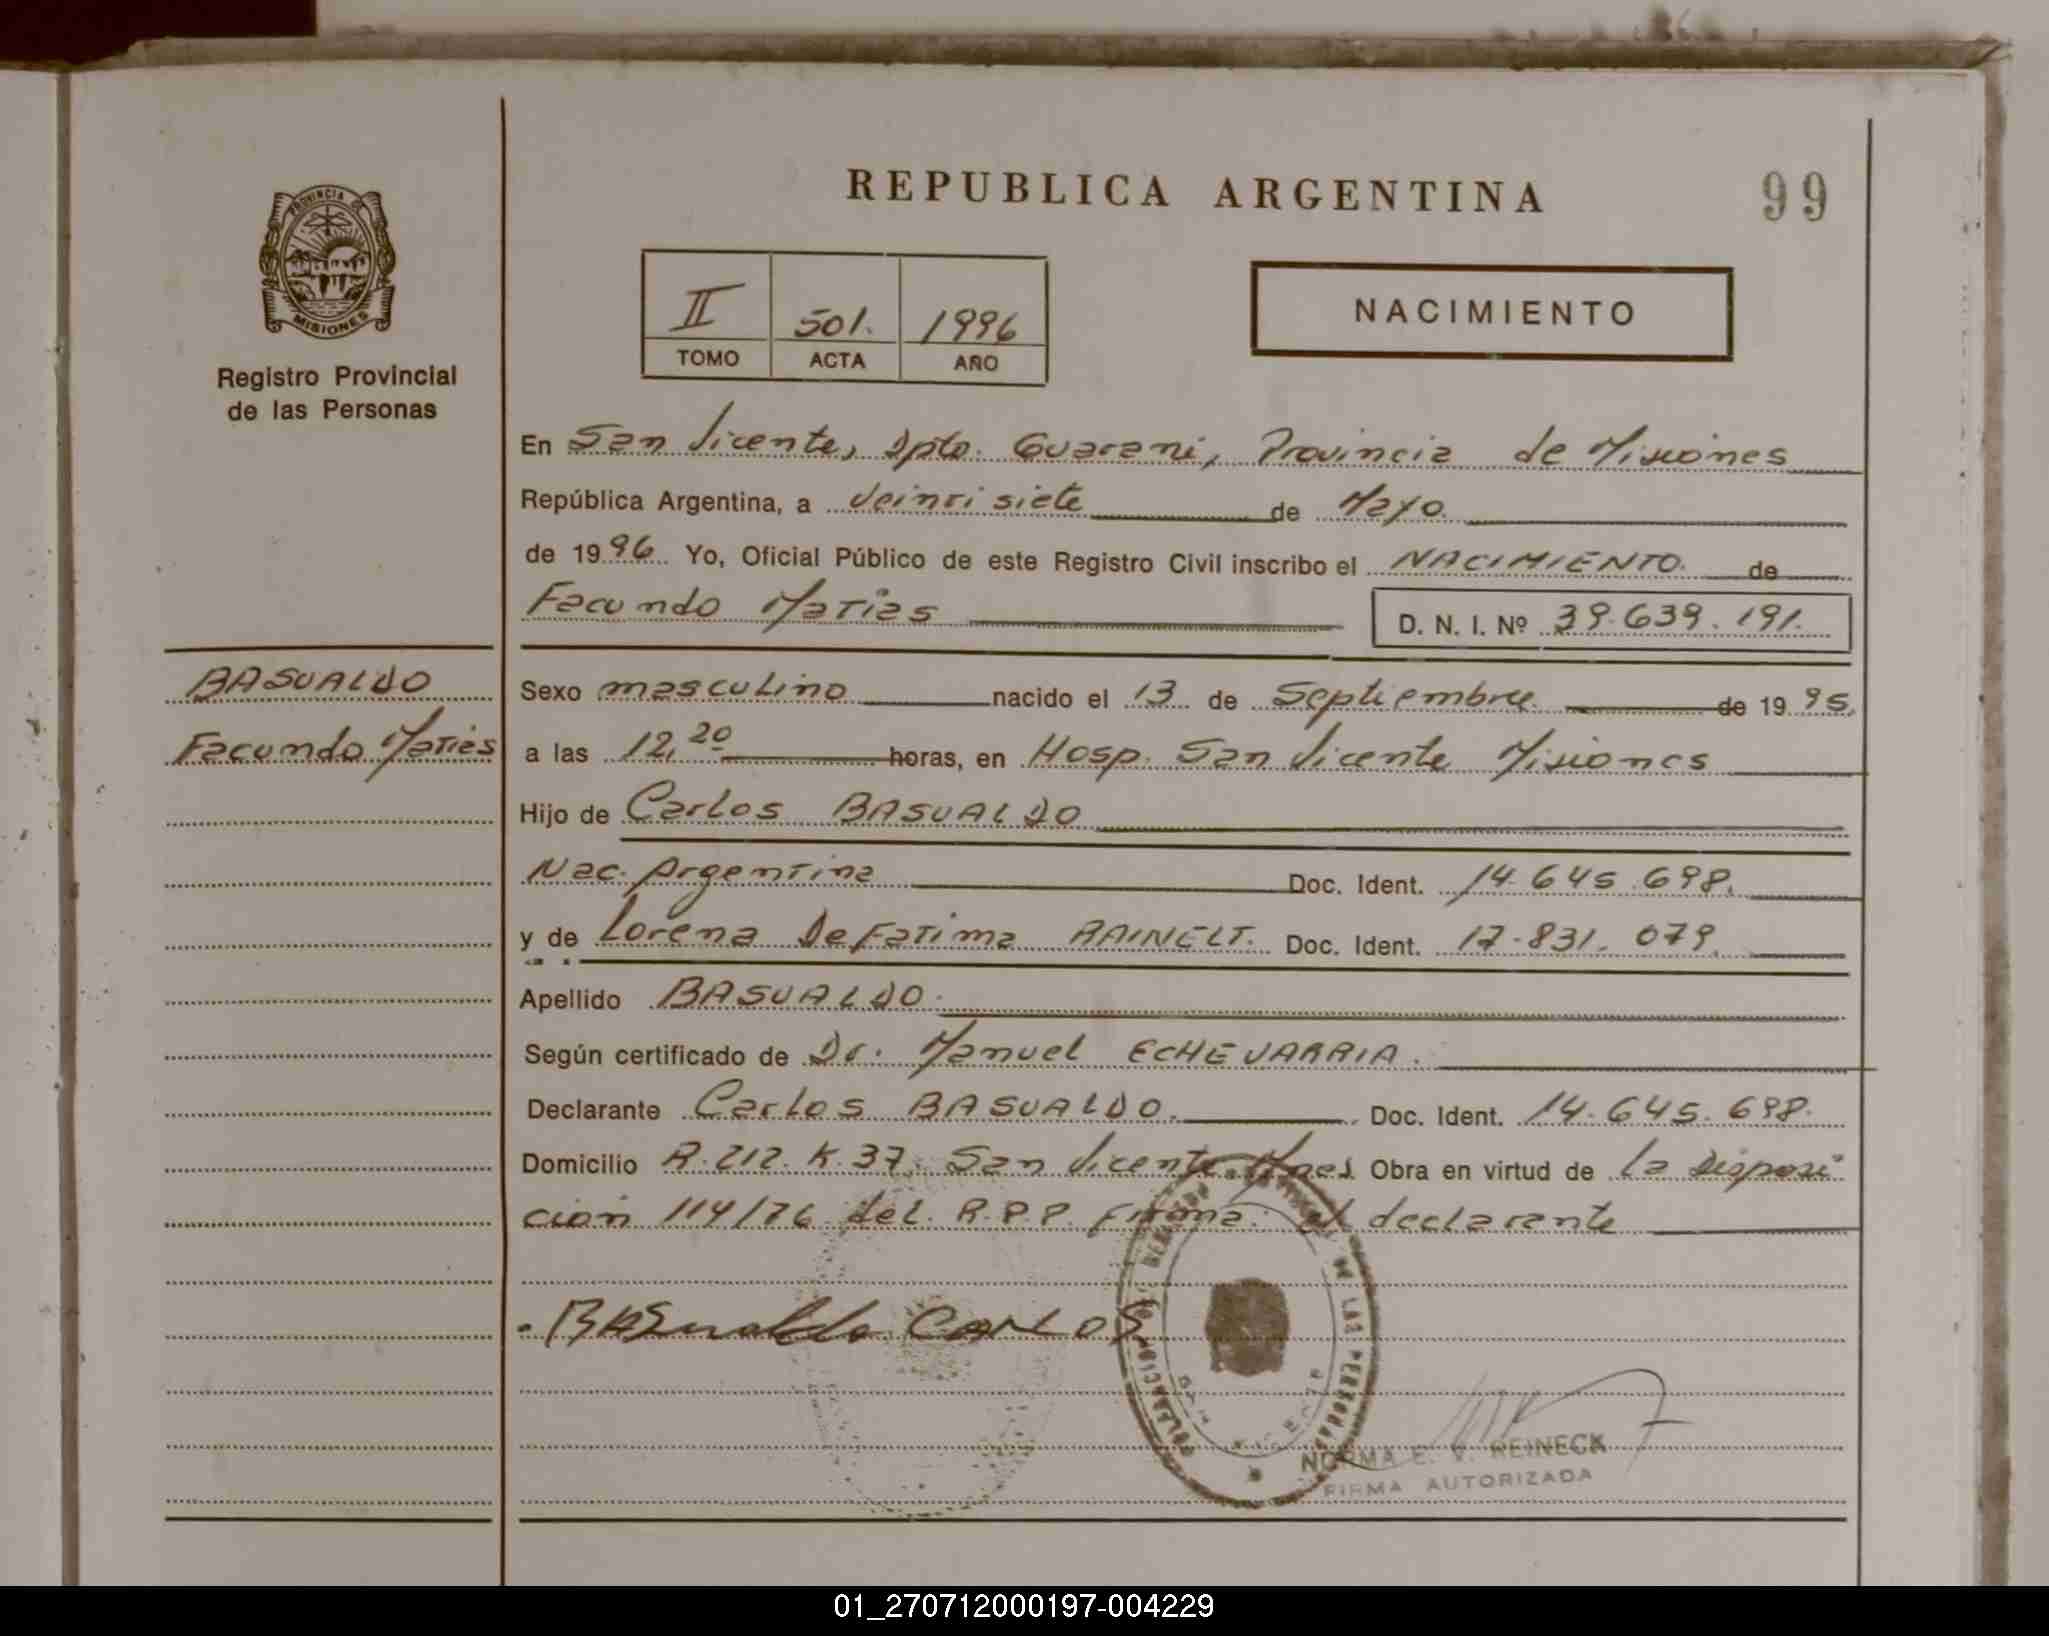 REPUBLICA ARGENTINA
99
PROVINCIA DE
MISIONES
Registro Provincial
de las Personas
II 501. 1996
TOMO ACTA AÑO
NACIMIENTO
En San Vicente, Dpto. Guarani, Provincia de Misiones
República Argentina, a Veintisiete de Mayo.
de 1996. Yo, Oficial Público de este Registro Civil inscribo el NACIMIENTO. de
Facundo Matías
D. N. I. Nº 39.639.191.
BASUALDO
Facundo Matías
Sexo masculino nacido el 13 de Septiembre de 1995.
a las 12,20 horas, en Hosp. San Vicente Misiones
Hijo de Carlos BASUALDO
Nac. Argentina Doc. Ident. 14.645.698.
y de Lorena De Fatima RAINELT. Doc. Ident. 17.831.079.
Apellido BASUALDO.
Según certificado de Dr. Manuel ECHEVARRIA.
Declarante Carlos BASUALDO. Doc. Ident. 14.645.698.
Domicilio R.212.K.37. San Vicente. Mnes. Obra en virtud de la Disposi
ción 114/76 del R.P.P. Firma: el declarante
BASualdo CARLOS
PROVINCIAL DE LAS PERSONAS
NORMA E. V. REINECK
FIRMA AUTORIZADA
01_270712000197-004229